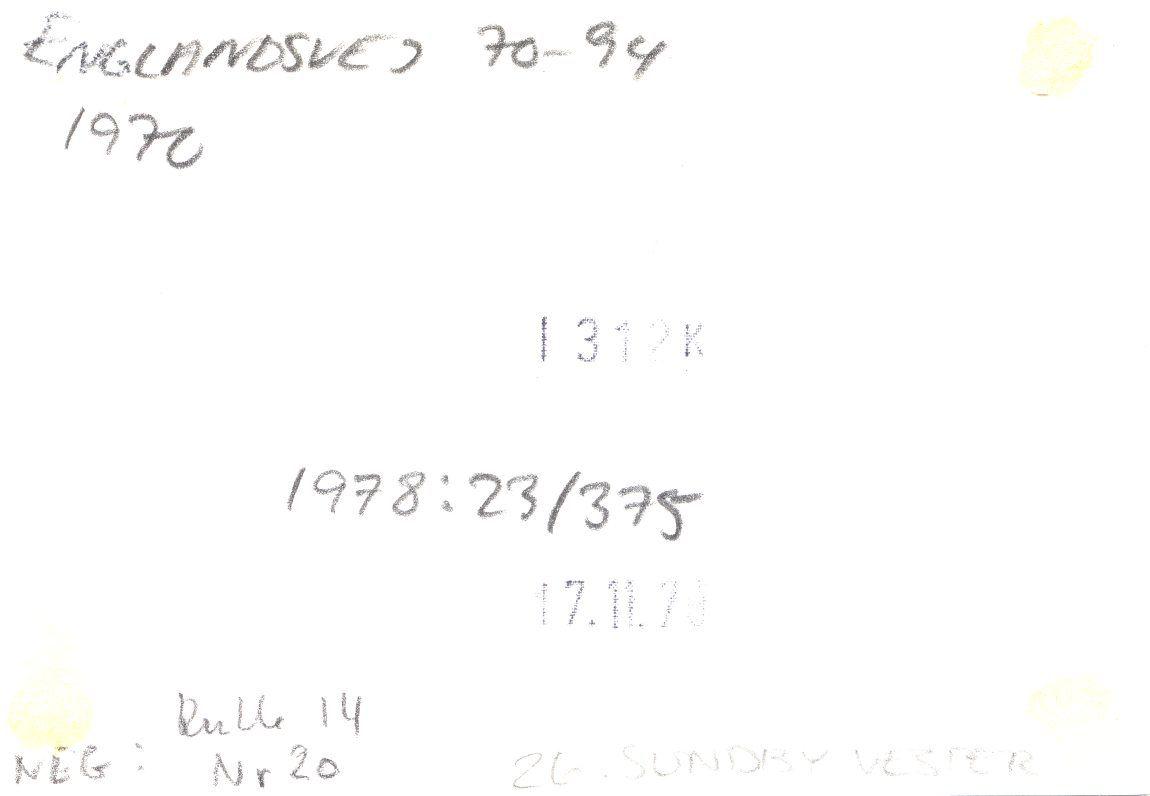 ENGLANDSVEJ 70-94
1970
1312K
1978:23/375
17.11.78
Rulle 14
NEG: Nr 20
26. SUNDBY VESTER